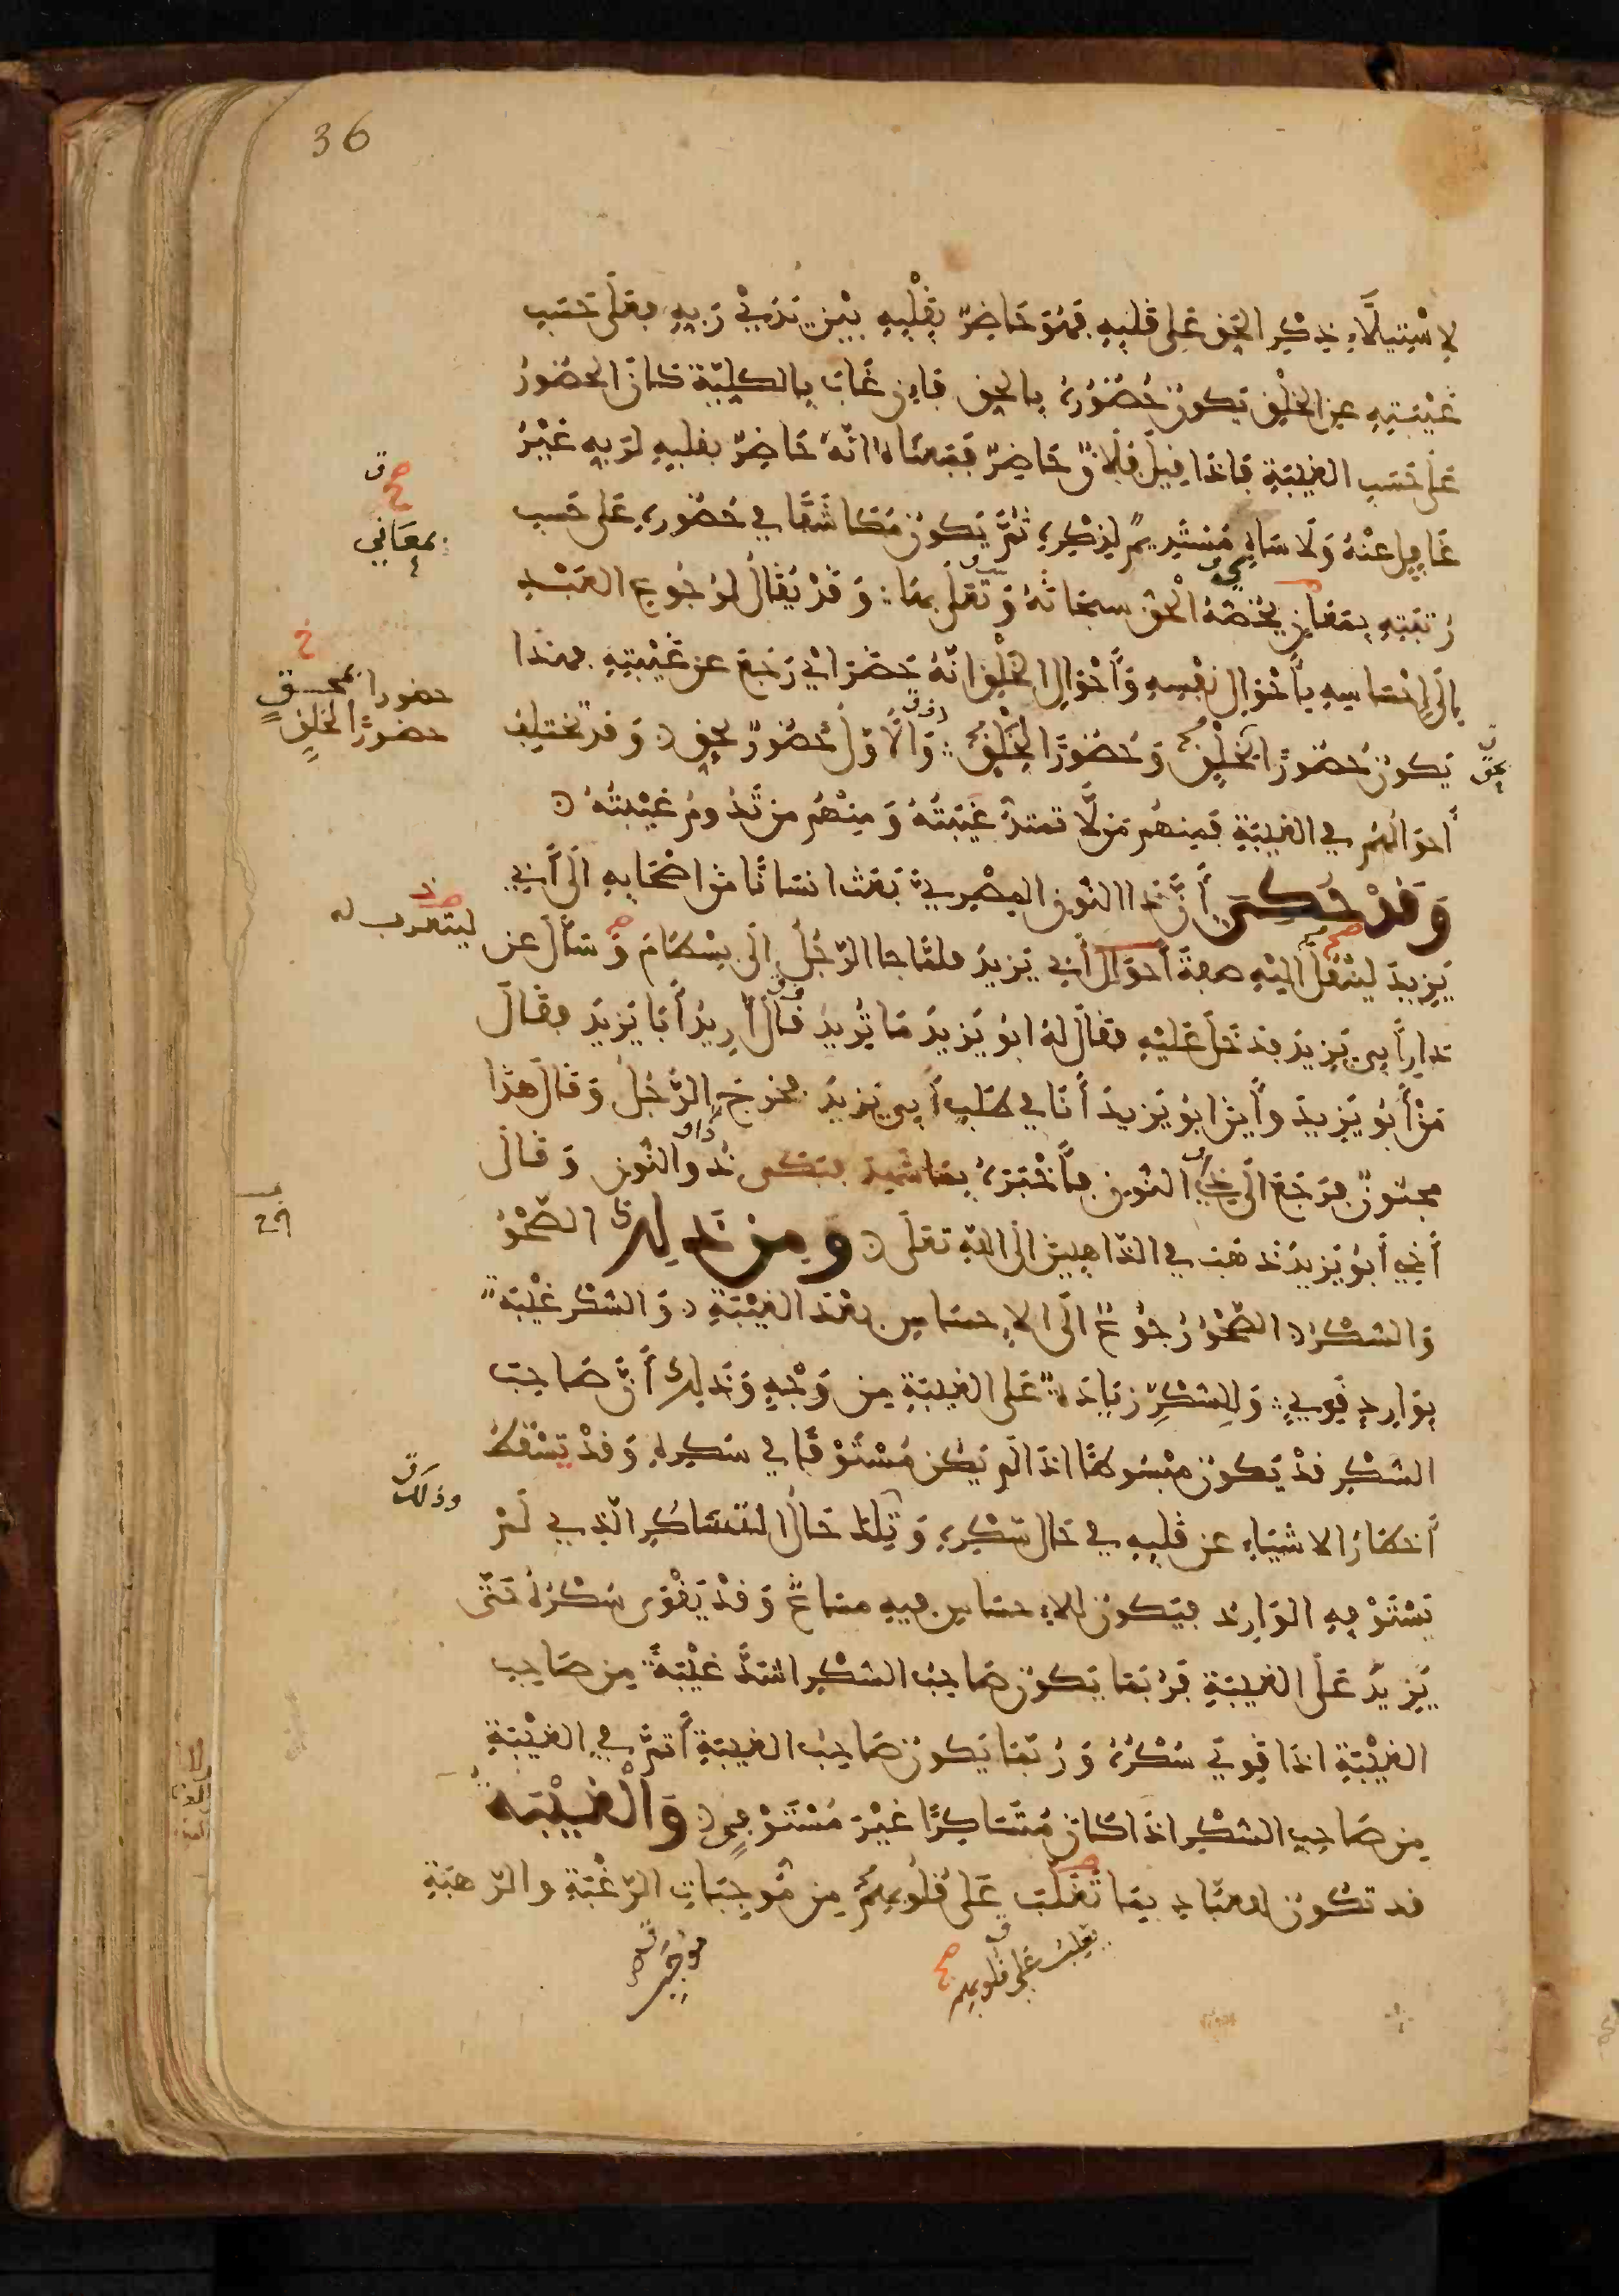 36
لِاسْتِيلَاءِ ذِكْرِ الحَقِّ عَلى قَلْبِهِ فَهُوَ حَاضِرٌ بِقَلْبِهِ بَيْنَ يَدَيْ رَبِّهِ فعَلَى حَسَبِ
غَيْبَتِهِ عن الخَلْقِ يَكُونُ حُضُورُهُ بالحقِ فَإن غَابَ بالكلِيّة كانَ الحضُورُ
عَلَى حَسَبِ الغَيبَةِ فَإذا قِيلَ فُلَانٌ حَاضِرٌ فَمَعنَاه انّهُ حَاضِرٌ بقلبهِ لرَبهِ غَيْرُ
غَافِلٍ عنْهُ وَلَا سَاهٍ مُسْتَدِيمٌ لِذِكْرِهِ ثُمَّ يَكُونُ مُكَاشَفًا في حُضُورِهِ عَلى حَسب
رُتبَتِهِ بِمَعَانٍ يَخُصّهُ الْحق سبحَانَهُ وَتَعَلَى بهَا وَقَدْ يُقَالُ لرُجُوعِ العَبْدِ
إلَى إحْسَاسِهِ بأَحْوَالِ نَفْسِهِ وَأَحْوَالِ الخَلْقِ انّهُ حَضَرَ ايْ رَجَعَ عن غَيْبَتِهِ فهذا
يَكونُ حُضورًا بخَلْقٍ وَحُضُورًا لِخَلْقٍ وَالأوّلُ حُضُورٌ بحقٍ وَقد تختَلِفُ
أَحوَالُهُم في الغَيبَةِ فَمِنهُم مَن لَّا تمتدُّ غَيْبَتُهُ وَمِنْهُم من تَدُومُ غَيْبَتُهُ
وَقَدْ حُكِيَ أَنَّ ذا النّونِ المِصْرِيَّ بَعَثَ انسَانًا من اصْحَابِهِ الَى أَبِي
يَزِيدَ لينْقُلَ اليْهِ صفَةَ أحوَالِ أبي يَزِيدَ فلمّا جا الرّجُلُ إلَى بِسْطَامَ وَسَأَلَ عن
دَارِ أَبي يَزِيدَ فدَخَلَ عَلَيْهِ فقَالَ لهُ ابُو يَزِيدَ مَا تُرِيدُ قَالَ أُرِيدُ أَبَا يَزِيدَ فقَالَ
مَنْ أَبُو يَزِيدَ وأَيْنَ ابُو يَزِيدَ أَنَا في طَلَبِ أَبِي يَزِيدَ فخرَجَ الرَّجُلُ وَقَالَ هَذا
مجنُونٌ فرَجَعَ الَى ذِي النّونِ فأَخْبَرَهُ بِمَا شَهِدَ فبَكى ذُو النّونِ وَقَالَ
أَخِي أَبُو يَزِيدَ ذَهَبَ في الذّاهِبينَ الَى اللهِ تعَلَى وَمِن ذَلِكَ الصّحْوُ
وَالسُكْرُ الصَّحْوُ رُجُوعٌ الَى الإحسَاسِ بَعْدَ الغَيْبَةِ وَالسُكْرُ غَيْبَةٌ
بِوَارِدٍ قَوِيٍّ وَلِلسُّكْرِ زيَادَةٌ عَلى الغَيبَةِ من وَجْهٍ وَذَلِكَ أَنَّ صَاحِبَ
السُكْرِ قدْ يَكُونُ مبْسُوطًا اذَا لَم يَكُن مُسْتَوْفًا في سُكرِهِ وَقدْ يَسْقُطُ
أخطَارُ الاشيَاءِ عن قَلبِهِ في حَالِ سُكْرِهِ وَتِلكَ حَالُ المُتَسَاكِرِ الّذِي لَمْ
يَسْتَوْفِهِ الوَارِدُ فيَكونُ للإحسَاسِ فيهِ مسَاغٌ وَقدْ يَقْوَى سُكْرُهُ حَتَّى
يَزِيدَ عَلَى الغَيبَةِ فَرُبّمَا يَكونُ صَاحِبُ السُكْرِ اشَدَّ غَيْبَةً مِن صَاحِبِ
الغَيْبَةِ اذَا قَوِيَ سُكْرُهُ وَرُبَّمَا يَكُونُ صَاحِبُ الغَيبَةِ أَتَمَّ في الغَيْبَةِ
مِن صَاحِبِ السُكْرِ اذَا كَانَ مُتَسَاكِرًا غَيْرَ مُسْتَوْفٍ وَالْغَيْبَة
قد تكُونُ للعبّادِ بِمَا تغْلبَ عَلى قُلُوبِهِمْ مِن مُوجِبَاتِ الرّغْبَةِ والرّهبَةِ
بمعَانٍي
حضورا بحق
حضورًا لخلقٍ
بحق
ليتعرف له
وذلك
يغلبُ على قلوبهم
موجب